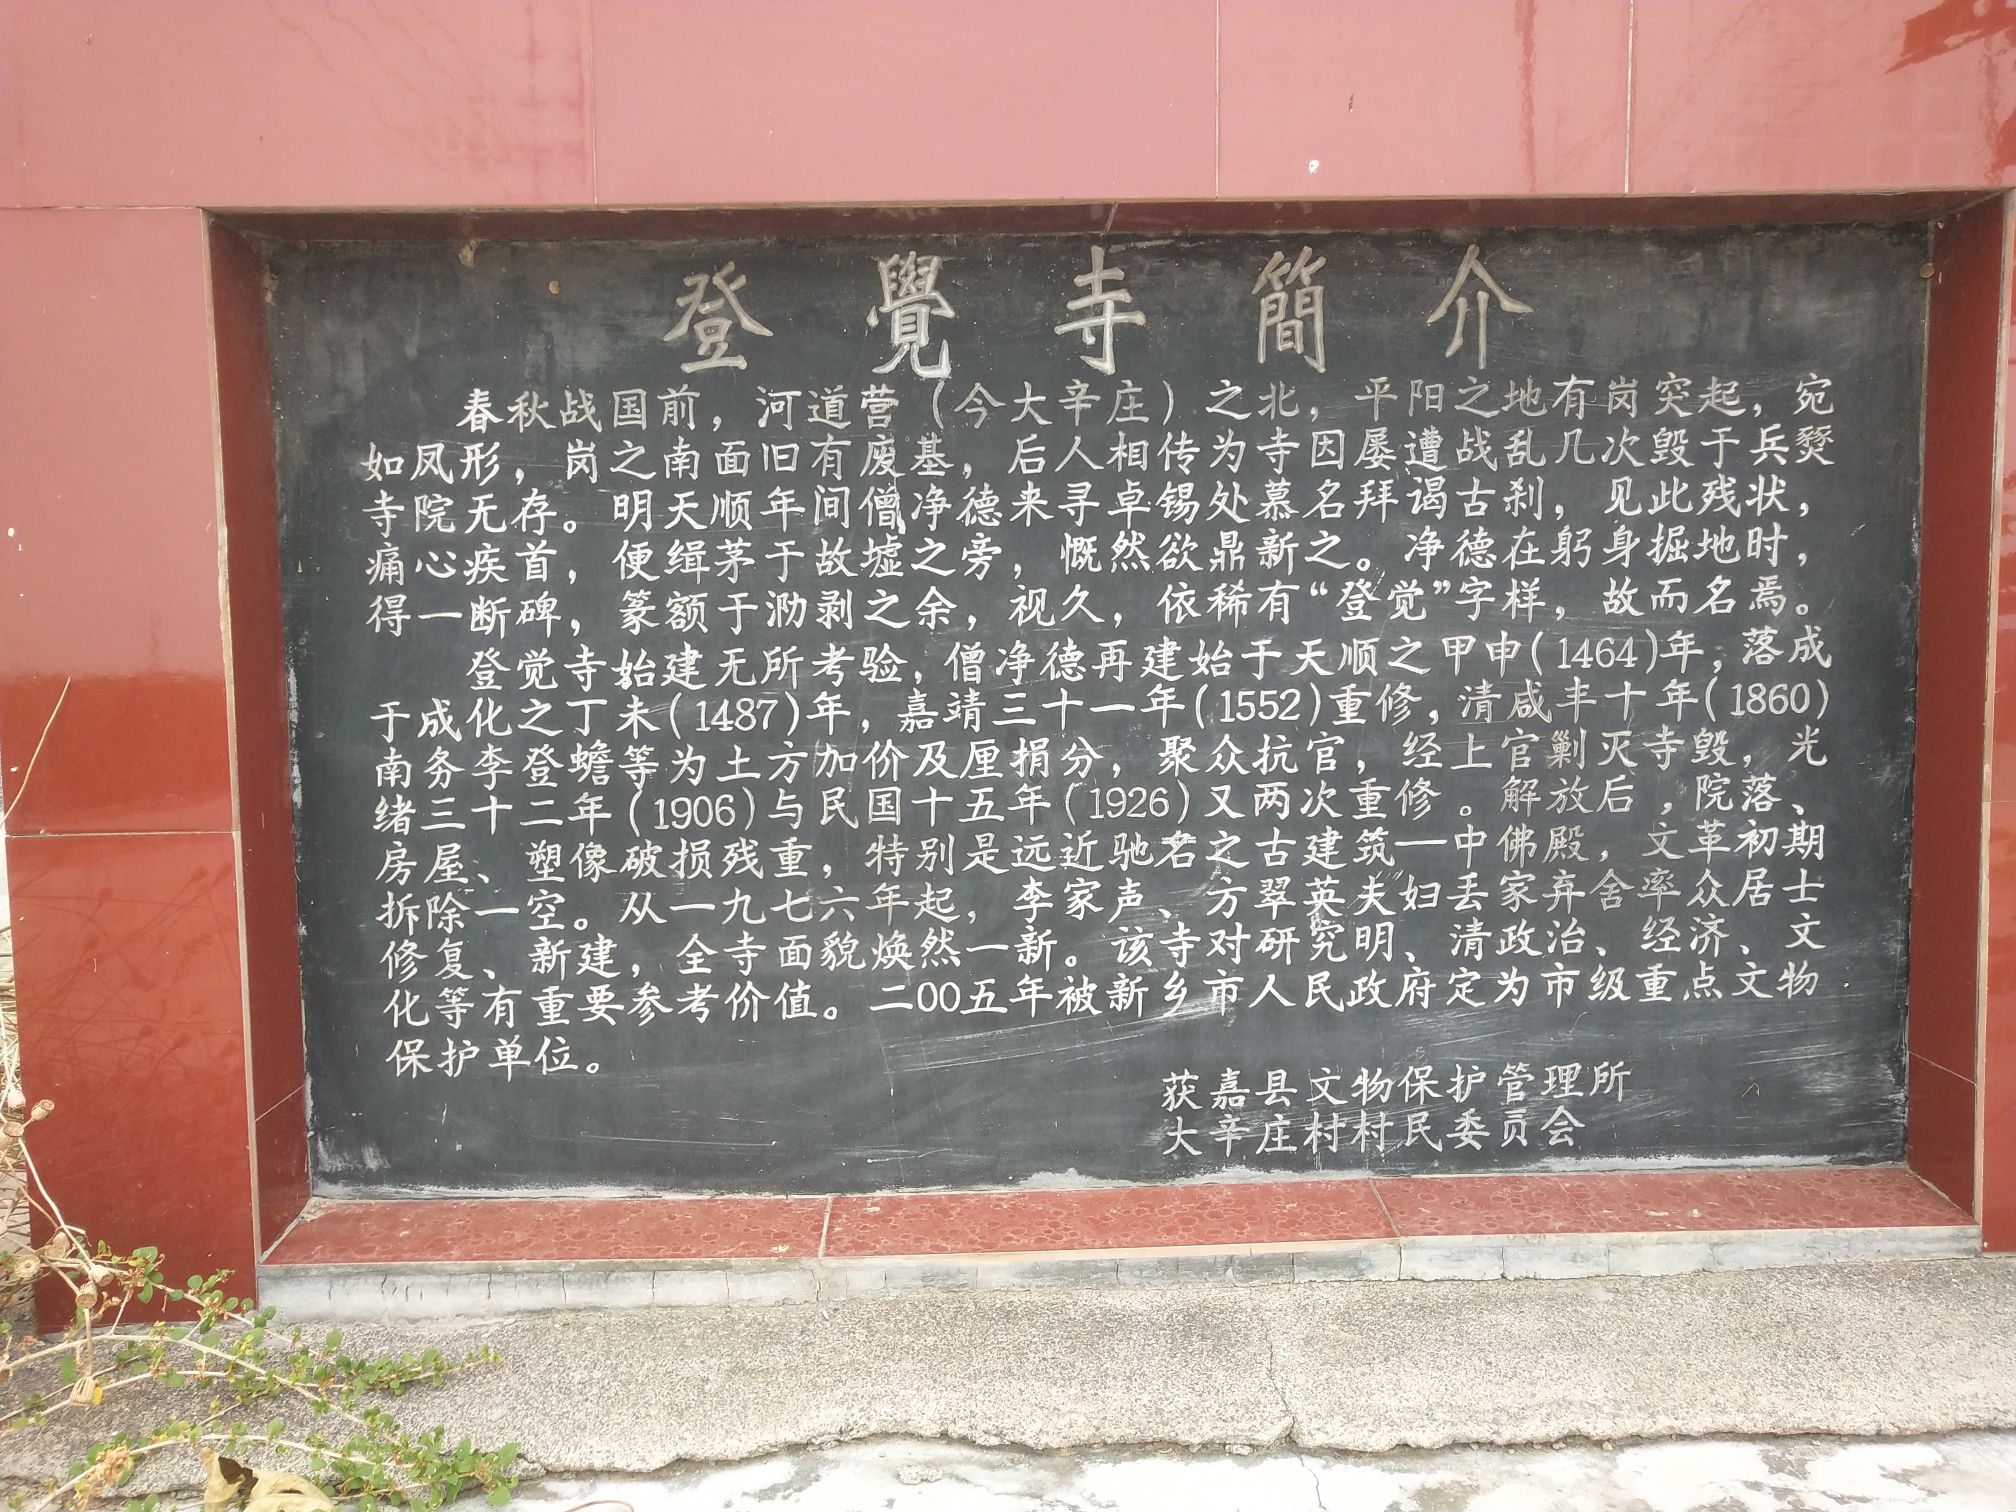 登覺寺簡介
春秋战国前，河道营（今大辛庄）之北，平阳之地有岗突起，宛
如凤形，岗之南面旧有废基，后人相传为寺因屡遭战乱几次毁于兵燹
寺院无存。明天顺年间僧净德来寻卓锡处慕名拜谒古刹，见此残状，
痛心疾首，便缉茅于故墟之旁，慨然欲鼎新之。净德在躬身掘地时，
得一断碑，篆额于泐剥之余，视久，依稀有“登觉”字样，故而名焉。
登觉寺始建无所考验，僧净德再建始于天顺之甲申(1464)年，落成
于成化之丁未(1487)年，嘉靖三十一年(1552)重修，清咸丰十年(1860)
南务李登蟾等为土方加价及厘捐分，聚众抗官，经上官剿灭寺毁，光
绪三十二年(1906)与民国十五年(1926)又两次重修。解放后，院落、
房屋、塑像破损残重，特别是远近驰名之古建筑—中佛殿，文革初期
拆除一空。从一九七六年起，李家声、方翠英夫妇丢家弃舍率众居士
修复、新建，全寺面貌焕然一新。该寺对研究明、清政治、经济、文
化等有重要参考价值。二00五年被新乡市人民政府定为市级重点文物
保护单位。
获嘉县文物保护管理所
大辛庄村村民委员会